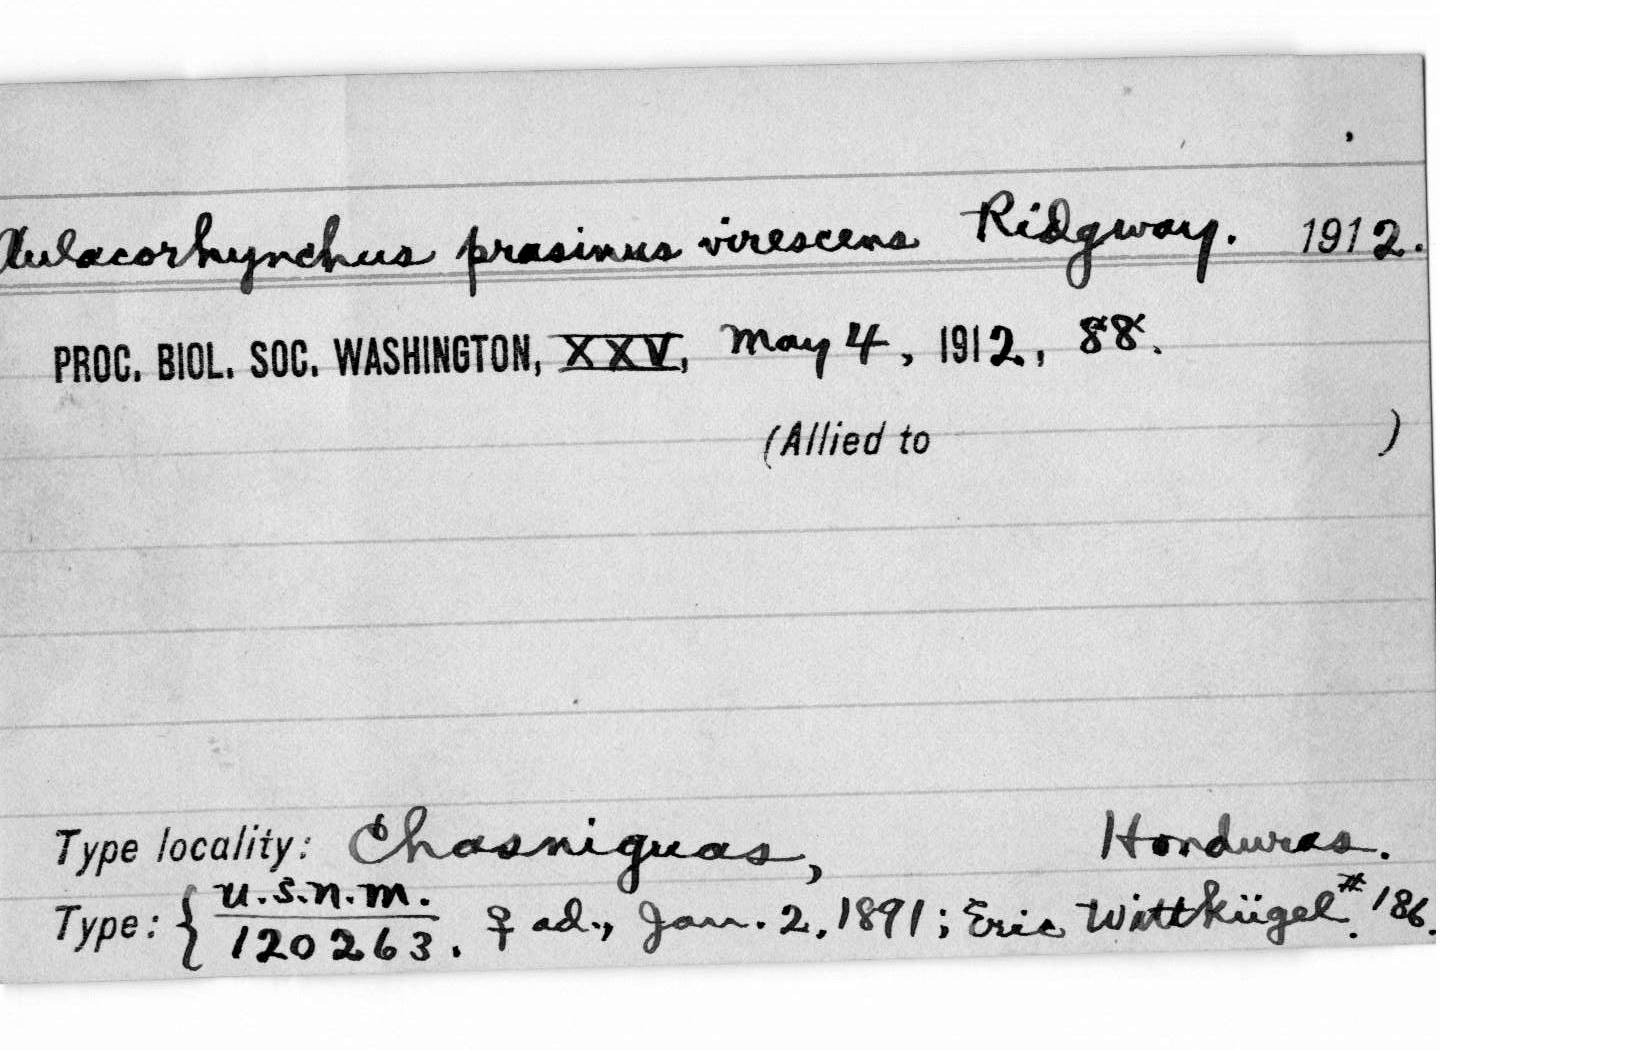 Aulacorhynchus prasinus virescens Ridgway. 1912.
PROC. BIOL. SOC. WASHINGTON, XXV, May 4, 1912, 88.
(Allied to )
Type locality: Chasniguas, Honduras.
Type: { U.S.N.M. 120263. ♀ ad., Jan. 2, 1891; Eric Wittkügel. # 186.